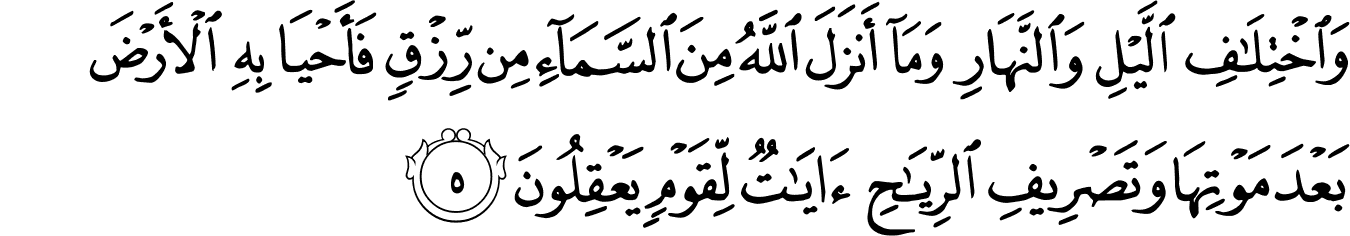 وَٱخْتِلَٰفِ ٱلَّيْلِ وَٱلنَّهَارِ وَمَآ أَنزَلَ ٱللَّهُ مِنَ ٱلسَّمَآءِ مِن رِّزْقٍ فَأَحْيَا بِهِ ٱلْأَرْضَ
بَعْدَ مَوْتِهَا وَتَصْرِيفِ ٱلرِّيَٰحِ ءَايَٰتٌ لِّقَوْمٍ يَعْقِلُونَ ٥